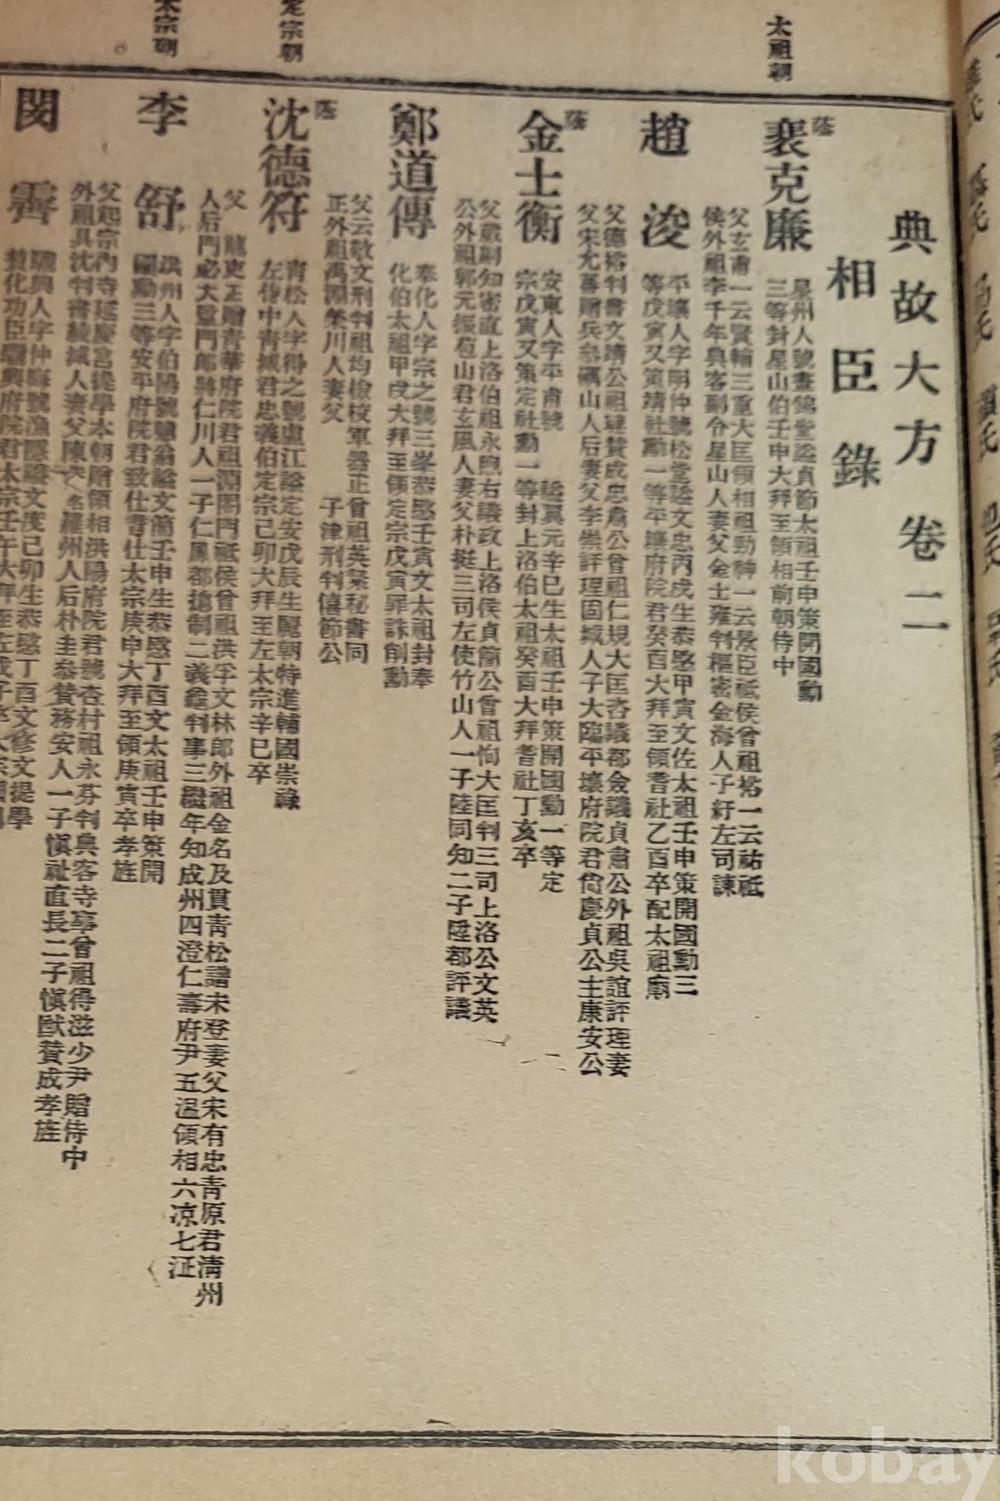 典故大方 卷二
相臣錄
太祖朝
蔭
裵克廉
星州人號晝錦堂諡貞節太祖壬申策開國勳
三等封星山伯壬申大拜至領相前朝侍中
父玄甫一云賢輔三重大匡領相祖勁神一云景臣祗侯曾祖裕一云祐祗
侯外祖李千年典客副令星山人妻父金士雍判樞密金海人子紆左司諫
趙浚
平壤人字明仲號松堂諡文忠丙戌生恭愍甲寅文佐太祖壬申策開國勳三
等戊寅又策靖社勳一等平壤府院君癸酉大拜至領耆社乙酉卒配太祖廟
父德裕判書文靖公祖璉贊成忠肅公曾祖仁規大匡咨議都僉議貞肅公外祖吳誼評理妻
父宋允蕃贈兵參礪山人后妻父李崇評理固城人子大臨平壤府院君尙慶貞公主康安公
蔭
金士衡
安東人字平甫號 諡翼元辛巳生太祖壬申策開國勳一等定
宗戊寅又策定社勳一等封上洛伯太祖癸酉大拜耆社丁亥卒
父蕆副知密直上洛伯祖永煦右議政上洛侯貞簡公曾祖恂大匡判三司上洛公文英
公外祖郭元振苞山君玄風人妻父朴挺三司左使竹山人一子陸同知二子陞都評議
鄭道傳
奉化人字宗之號三峯恭愍壬寅文太祖封奉
化伯太祖甲戌大拜至領定宗戊寅罪誅削勳
父云敬文刑判祖均檢校軍器正曾祖英粲秘書同
正外祖禹淵榮川人妻父 子津刑判僖節公
定宗朝
蔭
沈德符
靑松人字得之號盧江諡定安戊辰生麗朝特進輔國崇祿
左侍中靑城君忠義伯定宗己卯大拜至左太宗辛巳卒
父龍吏正贈靑華府院君祖淵閤門祗侯曾祖洪孚文林郎外祖金名及貫靑松譜未登妻父宋有忠靑原君淸州
人后門必大監門郎將仁川人一子仁鳳都摠制二義龜判事三繼年知成州四澄仁壽府尹五溫領相六淙七泟
太宗朝
李舒
洪州人字伯陽號戇翁諡文簡壬申生恭愍丁酉文太祖壬申策開
國勳三等安平府院君致仕耆仕太宗庚申大拜至領庚寅卒孝旌
父起宗內寺延慶宮提學本朝贈領相洪陽府院君號杏村祖永芬判典客寺事曾祖得滋少尹贈侍中
外祖具沈判書綾城人妻父陳 羅州人后朴圭參贊務安人一子愼祉直長二子愼猷贊成孝旌
閔霽
驪興人字仲晦號漁隱諡文度己卯生恭愍丁酉文修文提學
贊化功臣驪興府院君太宗壬午大拜至左戊子卒太宗國舅
kobay